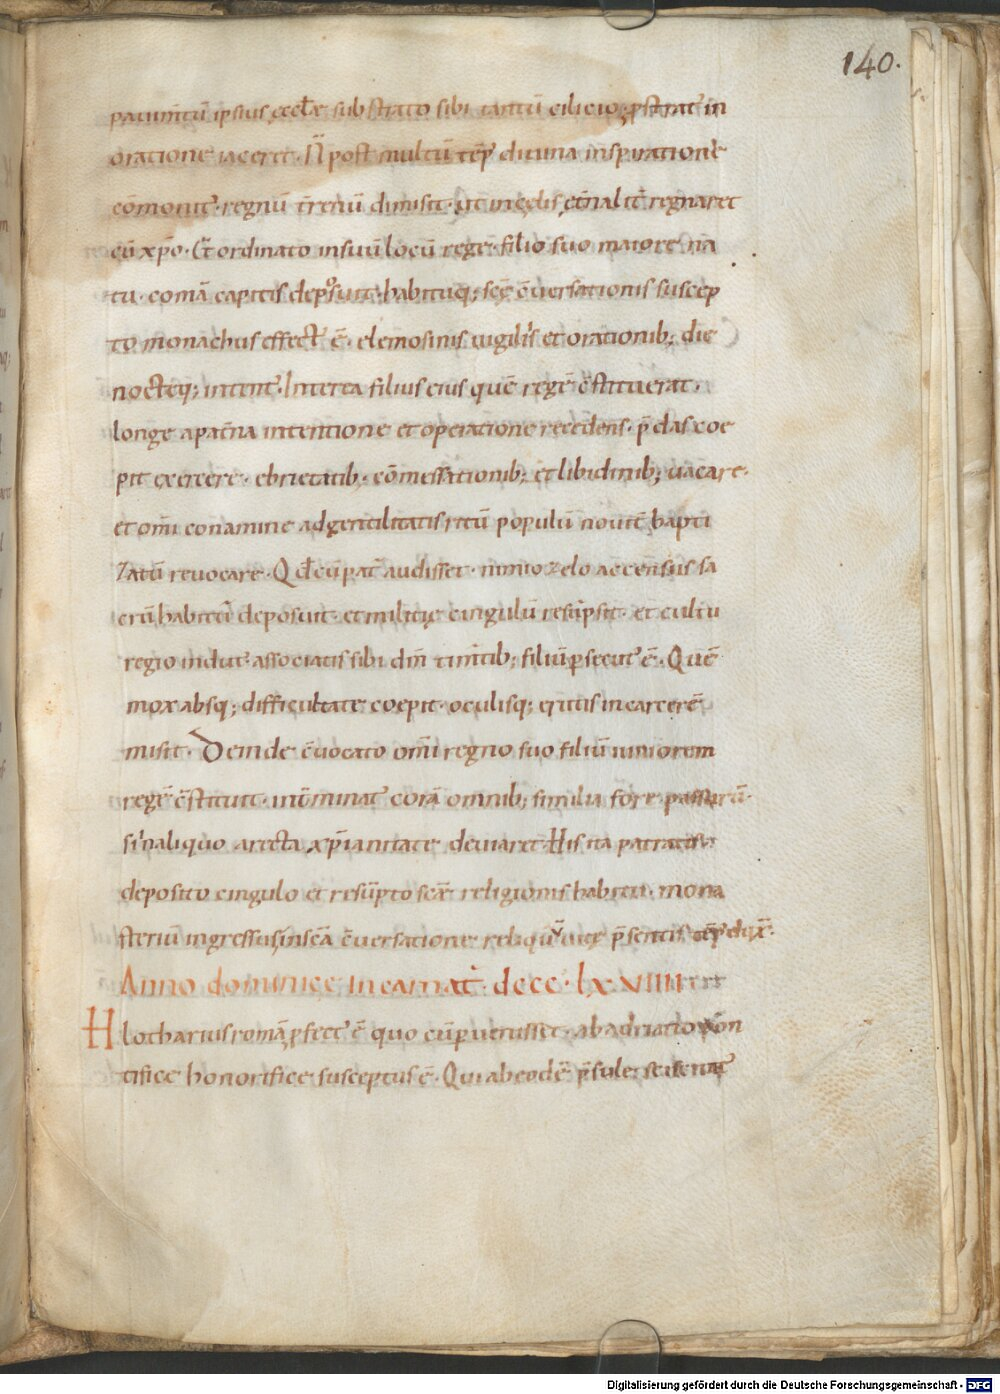 140.
pauimtũ ipsius ęcclæ substrato sibi tantũ cilicio, ꝓstrat᷒ in
oratione iaceret. N̄ post multũ tēp diuina inspiratione
cōmonit᷒ regnũ t̄renũ dimisit. ut in cęlis ęt̄nalit̄ regnaret
cũ xp̄o. Et ordinato in suũ locũ rege filio suo maiore na
tu. comā capitis deposuit. habituq; scę c̄uersationis suscep
to monachus effect᷒ ē. elemosinis uigiliis et orationib; die
nocteq; intent᷒. Interea filius eius quē regē c̄stituerat.
longe a pat̄na intentione et operatione recedens. p̄das coe
pit exercere. ebrietatib; cōmessationib; et libidinib; uacare.
et omi conamine ad gentilitatis ritũ populũ nouit̄ bapti
zatũ reuocare. Qđ cũ pat̄ audisset. nimio zelo accensus sa
crũ habitũ deposuit. et militię cingulũ resũpsit. et cultu
regio indut᷒ associatis sibi dm̄ tim̄tib; filiũ ꝑsecut᷒ ē. Quē
mox absq; difficultate coepit. oculisq; erutis in carcerē
misit. Deinde c̄uocato omi regno suo filiũ iuniorem
regē c̄stituit. int̄minat᷒ corā omnib; similia fore passurũ.
si in aliquo a recta xp̄ianitate deuiaret. His ita patratis.
deposito cingulo et resũpto scæ religionis habitu. mona
steriũ ingressus in scā c̄uersatione reliquũ uitę p̄sentis tēp᷒ dux̄.
Anno dominicę incarnat̄. dccc. lxviiii
Hlotharius romā ꝓfect᷒ ē quo cũ ꝑuenisset. ab adriano pon
tifice honorifice susceptus ē. Qui ab eodē p̄sule sciscitat᷒
Digitalisierung gefördert durch die Deutsche Forschungsgemeinschaft - DFG